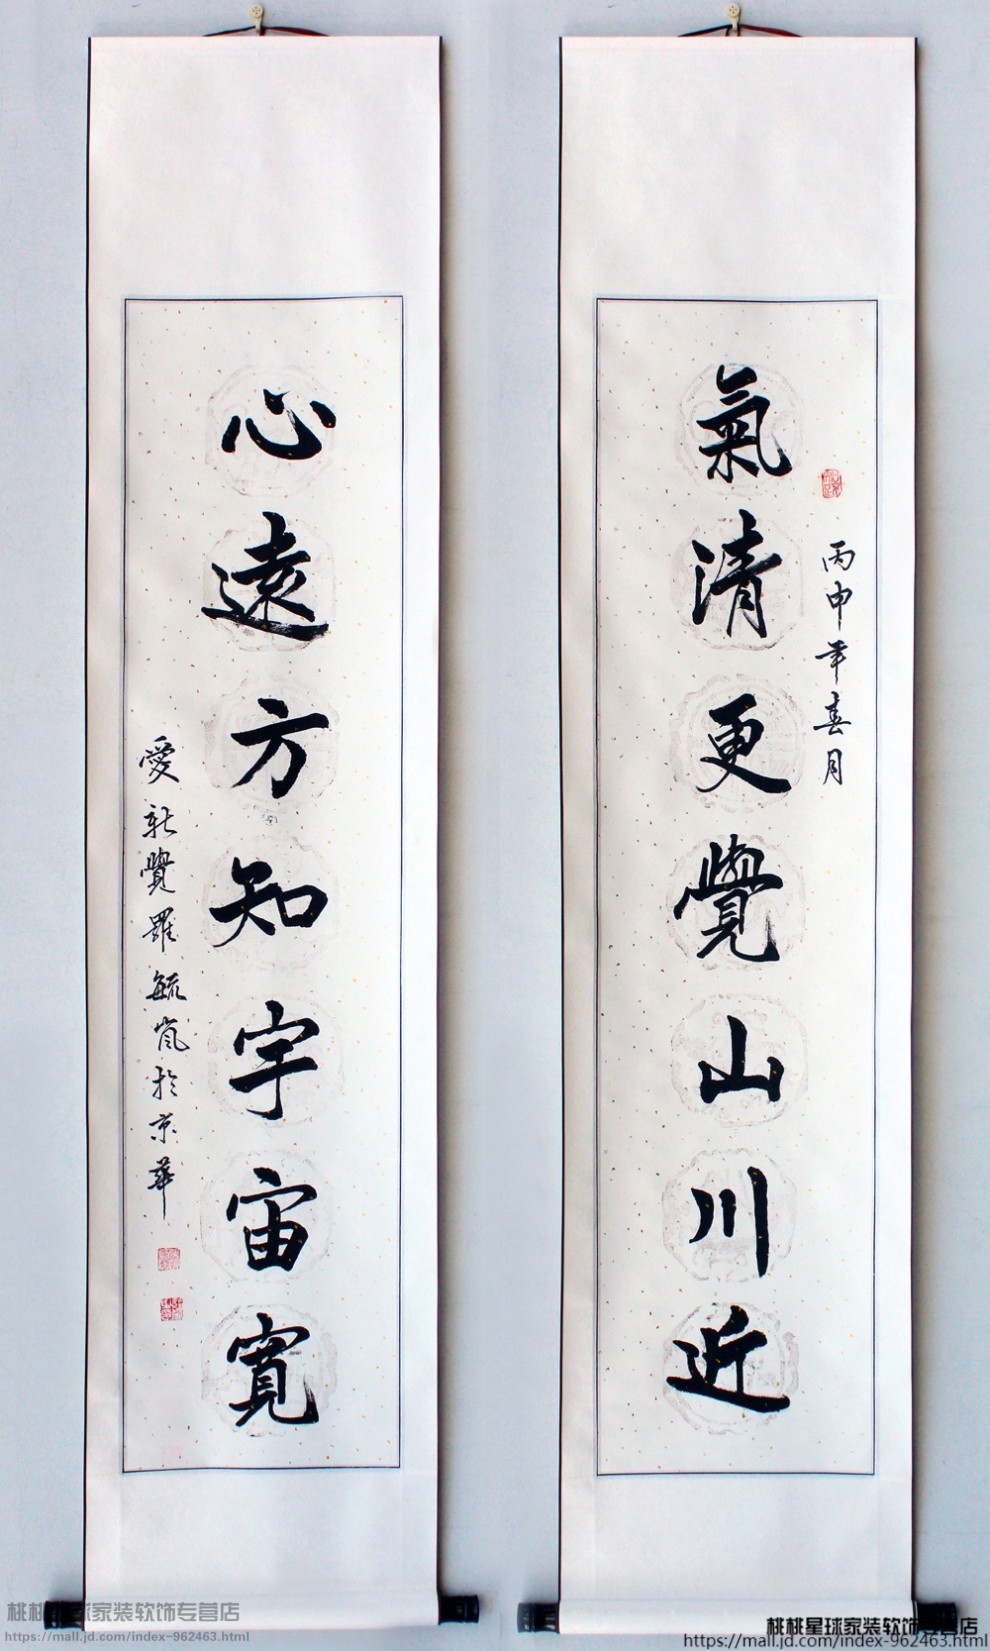 氣清更覺山川近
丙申年春月
心遠方知宇宙寬
愛新覺羅毓嵐於京華
桃桃星球家装软饰专营店
https://mall.jd.com/index-962463.html
桃桃星球家装软饰专营店
https://mall.jd.com/index-962463.html